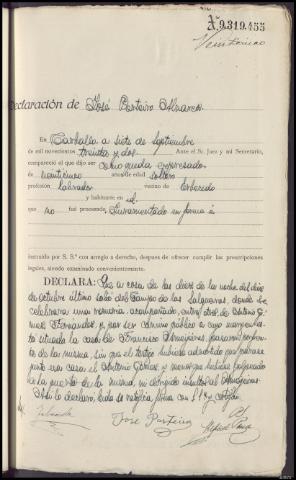 A.9.319.455
Veinticinco
Declaración de José Porteiro Abruñeros
En Carballo a siete de Septiembre
de mil novecientos treinta y dos. Ante el Sr. Juez y mi Secretario,
compareció el que dijo ser como queda expresado
de veinticinco años de edad soltero
profesión labrador vecino de
y habitante en id.
que no fué procesado, Juramentado en forma é
instruido por S. Sª con arreglo a derecho, después de ofrecer cumplir las prescripciones
legales, siendo examinado convenientemente.
DECLARA: Que a cosa de las doce de la noche del día
de octubre último salió del Campo de las Salgueiras, donde se
celebrara una romería, acompañado, entre otros, de Antonio
Fernandez, y por ser camino público en cuyo
situada la casa de Francisco Amenijeiras, pasaron por
de la misma, sin que el testigo hubiese advertido que entrase
para esa casa el Antonio Gómez y menos que hubiese golpeado
la puerta de la misma, ni dirigido insultos al Amenijeiras.
Así lo declaró, leída se ratifica, firma con S. Sª y certifico.
José Porteiro